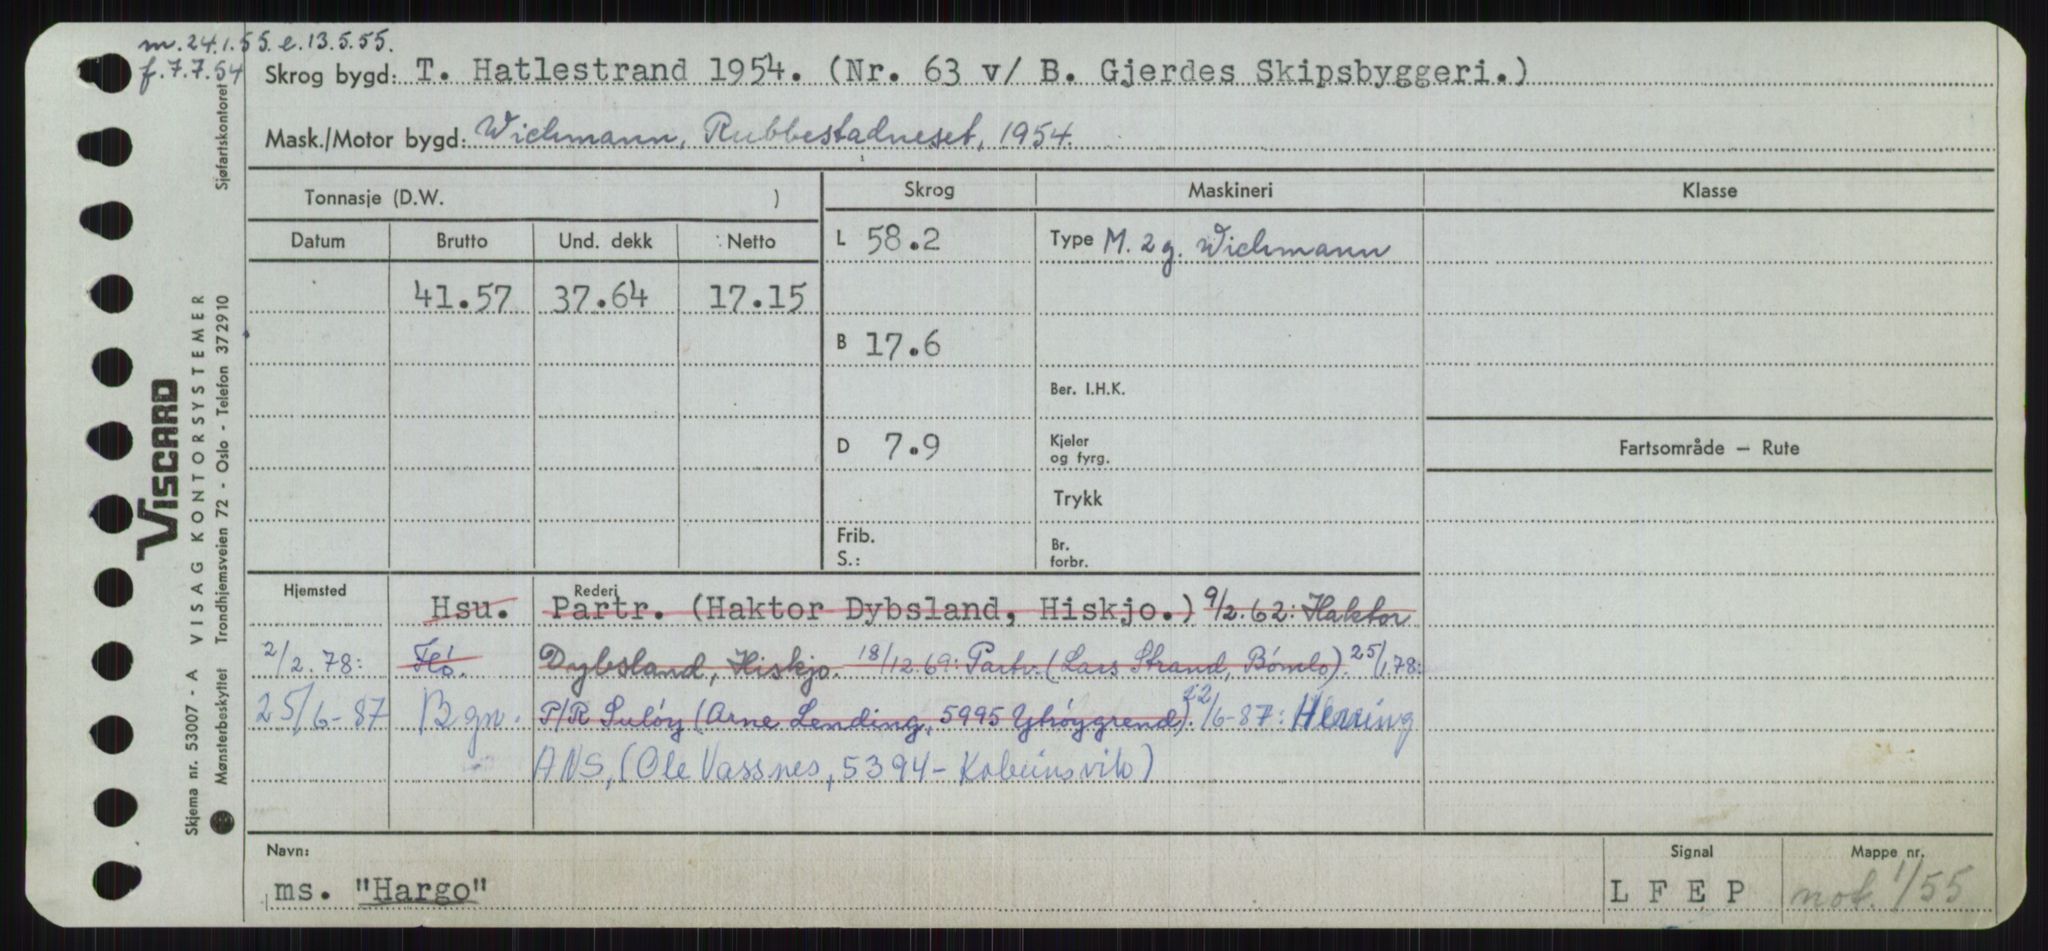 m. 24.1.55. e. 13.5.55.
f. 7.7.54
Skrog bygd: T. Hatlestrand 1954. (Nr. 63 v/ B. Gjerdes Skipsbyggeri.)
Mask./Motor bygd: Wichmann, Rubbestadneset, 1954.
Tonnasje (D.W. )
Skrog
Maskineri
Klasse
Datum Brutto Und. dekk Netto
L 58.2
Type M. 2 g. Wichmann
41.57 37.64 17.15
B 17.6
Ber. I.H.K.
D 7.9
Kjeler
og fyrg.
Fartsområde — Rute
Trykk
Frib.
S.:
Br.
forbr.
Hjemsted
Rederi
Hsu. Partr. (Haktor Dybsland, Hiskjo.) 9/2.62: Haktor
2/2.78: Flö. Dybsland, Hiskjo. 18/12.69: Partr. (Lars Strand, Bömlo). 25/1.78:
25/6-87 Bgn. P/R Sulöy (Arne Lending, 5995 Ytröygrend). 22/6-87: Herring
ANS, (Ole Vassnes, 5394 - Kolbeinsvik)
Navn:
ms. "Hargo"
Signal
L F E P
Mappe nr.
not. 1/55
Sjøfartskontoret
VISCARD
VISAG KONTORSYSTEMER
Trondhjemsveien 72 - Oslo - Telefon 372910
Skjema nr. 53007 - A
Mønsterbeskyttet